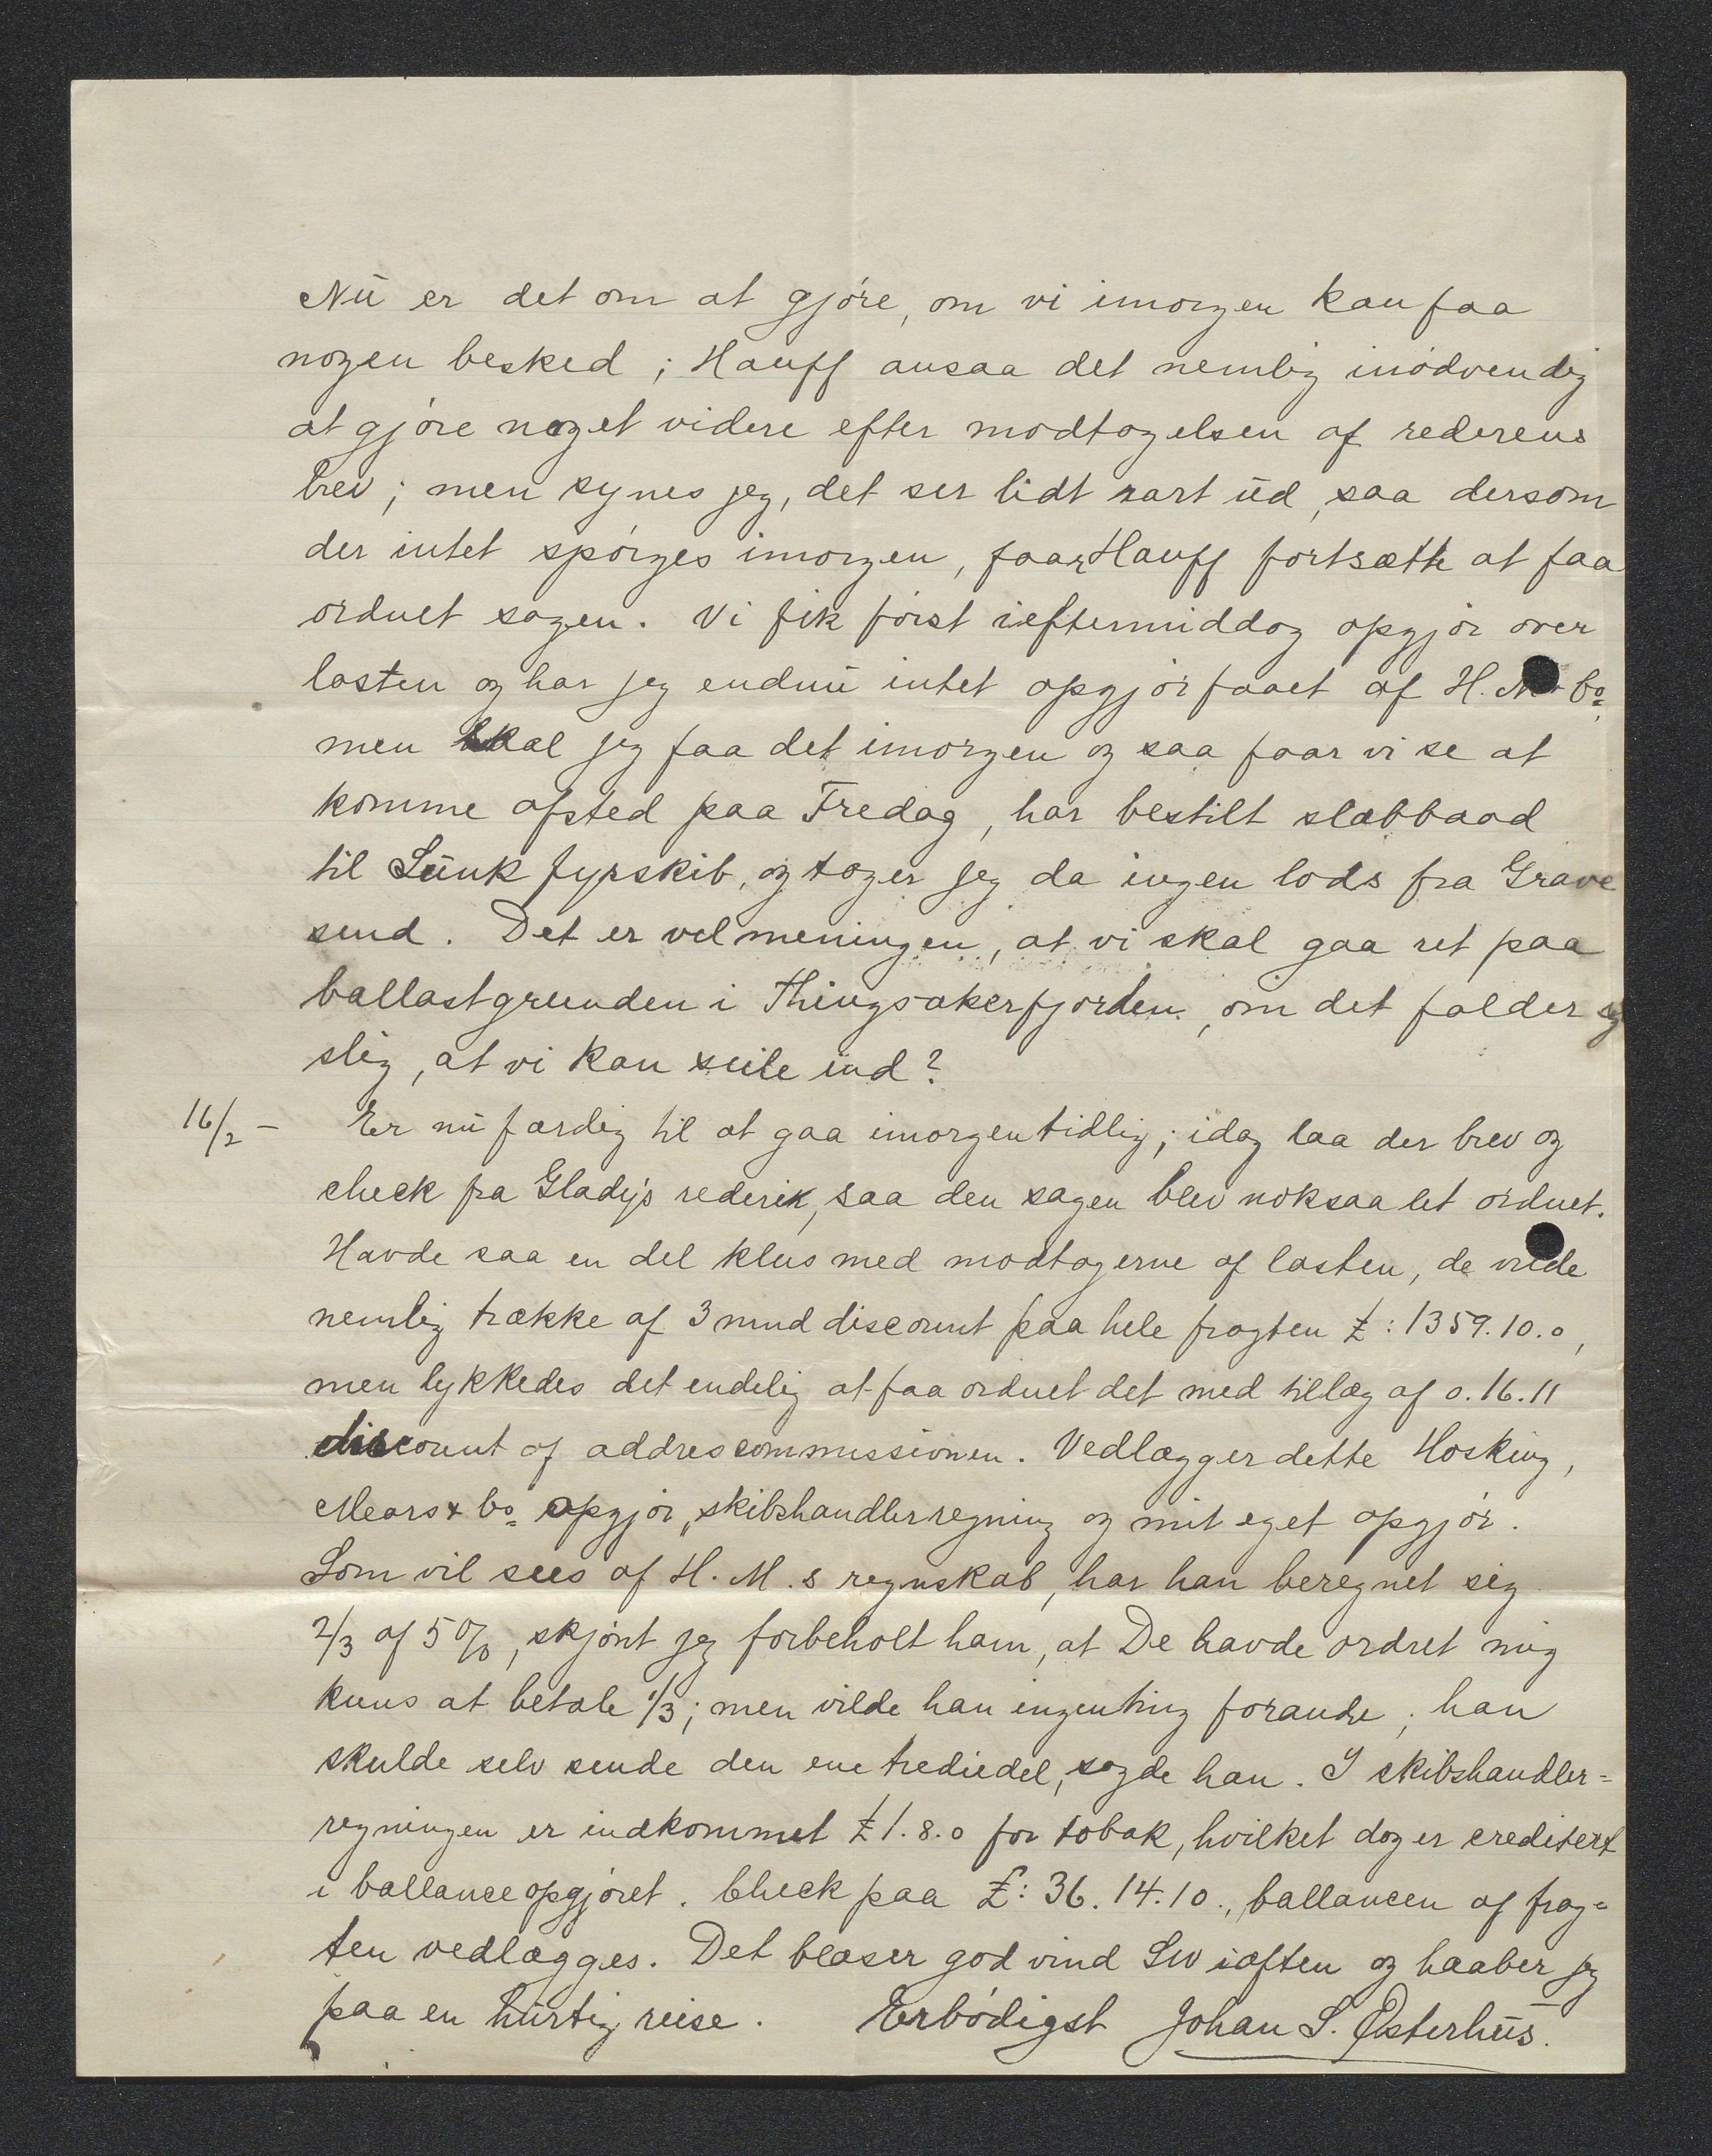 Nu er det om at gjøre, om vi imorgen kan faa
nogen besked; Hauff ansaa det nemlig unødvendig
at gjøre noget videre efter modtagelsen af rederens
brev; men synes jeg, det ser lidt rart ud, saa dersom
der intet spørges imorgen, faar Hauff fortsætte at faa
ordnet sagen. Vi fik først ieftermiddag opgjør over
lasten og har jeg endnu intet opgjør faaet af H. M & Co.,
men skal jeg faa det imorgen og saa faar vi se at
komme afsted paa Fredag, har bestilt slæbbaad
til Sunk fyrskib, og tager jeg da ingen lods fra Grave
send. Det er vel meningen, at vi skal gaa ret paa
ballastgrunden i Thingsakerfjorden, om det falder sig
slig, at vi kan seile ind?
16/2 – Er nu færdig til at gaa imorgentidlig; idag laa der brev og
check fra Gladys rederi, saa den sagen blev noksaa let ordnet.
Havde saa en del klus med modtagerne af lasten, de vilde
nemlig trække af 3 mnd discount paa hele fragten £: 1359.10.0,
men lykkedes det endelig at faa ordnet det med tillæg af 0.16.11
discount af addrescommissionen. Vedlægger dette Hosking,
Mears & Co. opgjør, skibshandlerregning og mit eget opgjør.
Som vil sees af H. M.s regnskab, har han beregnet sig
2/3 af 5 %, skjønt jeg forbeholt ham, at De havde ordret mig
kuns at betale 1/3; men vilde han ingenting forandre; han
skulde selv sende den ene trediedel, sagde han. I skibshandler=
regningen er indkommet £ 1.8.0 for tobak, hvilket dog er creditert
i ballanceopgjøret. Check paa £: 36.14.10., ballancen af frag=
ten vedlægges. Det blæser god vind SW iaften og haaber jeg
paa en hurtig reise. Erbødigst Johan S. Østerhus.